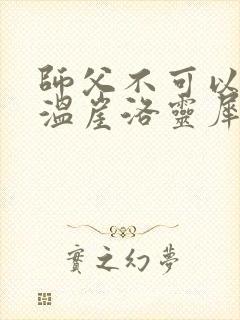 師父不可以
溫崖洛靈犀
實之幻夢